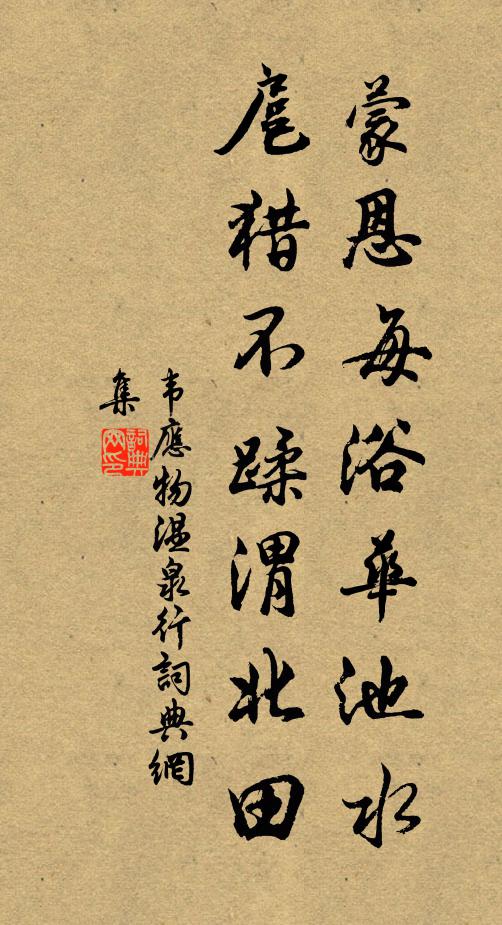 蒙恩每浴華池水
扈猎不蹂渭北田
韦應物温泉行詞典網
集
詞典網印